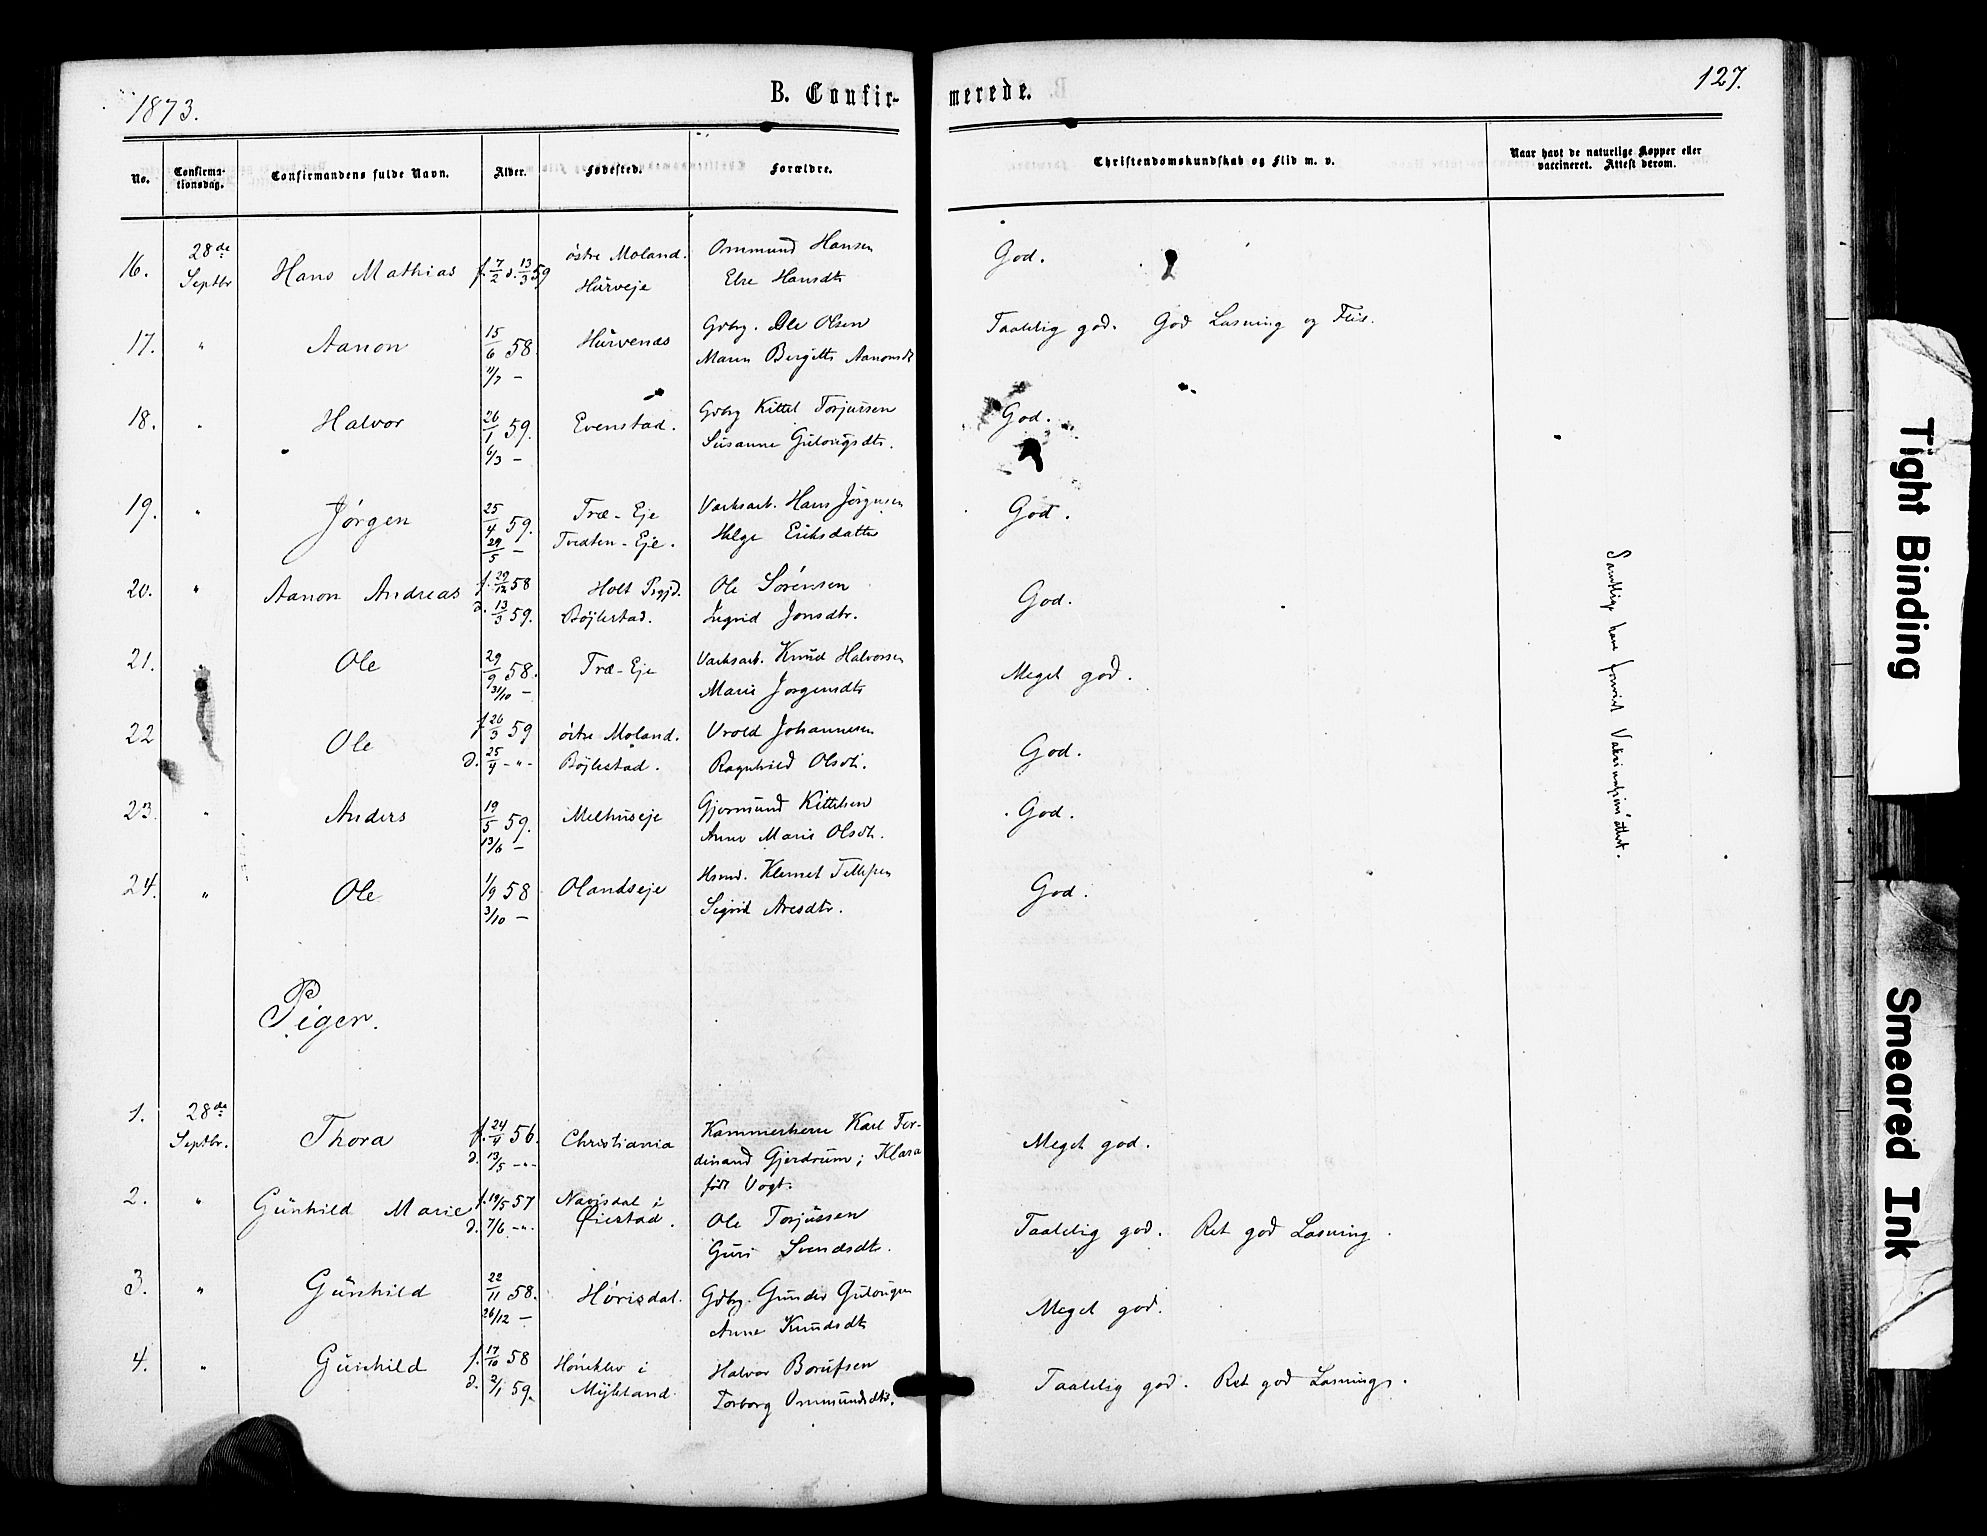 1873.
B. Confir-
merede.
127.
No.
Confirma-
tionsdag.
Confirmandens fulde Navn.
Alder.
Fødested.
Forældre.
Christendomskundskab og Flid m. v.
Naar havt de naturlige Kopper eller
vaccineret. Attest derom.
16. 28de Septbr Hans Mathias f. 7/2 d. 13/3 59
østre Moland. Hürveje
Ommund Hansen
Else Hansdtr
God.
17. " Aanon 15/6 58. 11/7 –
Hürvenæs
Gdbr. Ole Olsen
Maren Bergitte Aanonsdt
Taalelig god. God Læsning og Flid.
18. " Halvor 26/1 59. 6/3 –
Evenstad.
Gdbr Kittel Torjussen
Susanne Gulovigsdtr.
God.
19. " Jørgen 25/4 59. 29/5 –
Træ-Eje
Tvedten-Eje.
Værksarb. Hans Jørgensen
Helge Eriksdatter
God.
20. " Aanon Andreas f. 29/12 58
d. 13/3 59.
Holt Prgjd.
Böjlestad.
Ole Sörensen
Ingrid Jonsdtr.
God.
21. Ole 29/9 58. 31/10 –
Træ-Eje
Værksarb. Knud Halvorsen
Marie Jorgensdtr
Meget god.
22 Ole f. 26/3 59
d. 25/4 – " –
östre Moland.
Böjlestad.
Vrold Johannesen
Ragnhild Olsdtr.
God.
23. " Anders 19/5 59. 13/6 –
Melhuseje
Gjermund Kittelsen
Anne Marie Olsdtr.
God.
24. " Ole 1/9 58 3/10 –
Olandseje
Hsmd. Klemet Tellefsen
Sigrid Aresdtr.
God.
Samtlige have forevist Vakcinationsattest.
Piger.
1. 28de Septbr. Thora f. 24/4 56.
d. 13/5 – " –
Christiania
Kammerherre Karl Fer-
dinand Gjerdrum; Klara
født Vogt.
Meget god.
2. " Günhild Marie f. 19/5 57
d. 7/6 – " –
Navisdal i
Øiestad.
Ole Torjüssen
Guri Svendsdtr.
Taalelig god. Ret god Læsning.
3. " Günhild 22/11 58. 26/12 –
Hørisdal.
Gdbr. Gunder Gulovigsen
Anne Knudsdtr
Meget god.
4. " Günhild f. 17/10 58
d. 2/1 59.
i
Mykland.
Halvor Borüfsen
Torborg Ommundsdtr.
Taalelig god. Ret god Læsning.
Tight Binding
Smeared Ink